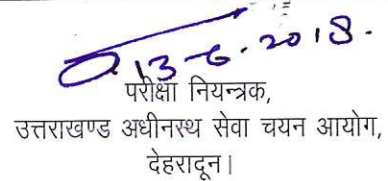 13-6-2018.
परीक्षा नियन्त्रक,
उत्तराखण्ड अधीनस्थ सेवा चयन आयोग,
देहरादून।